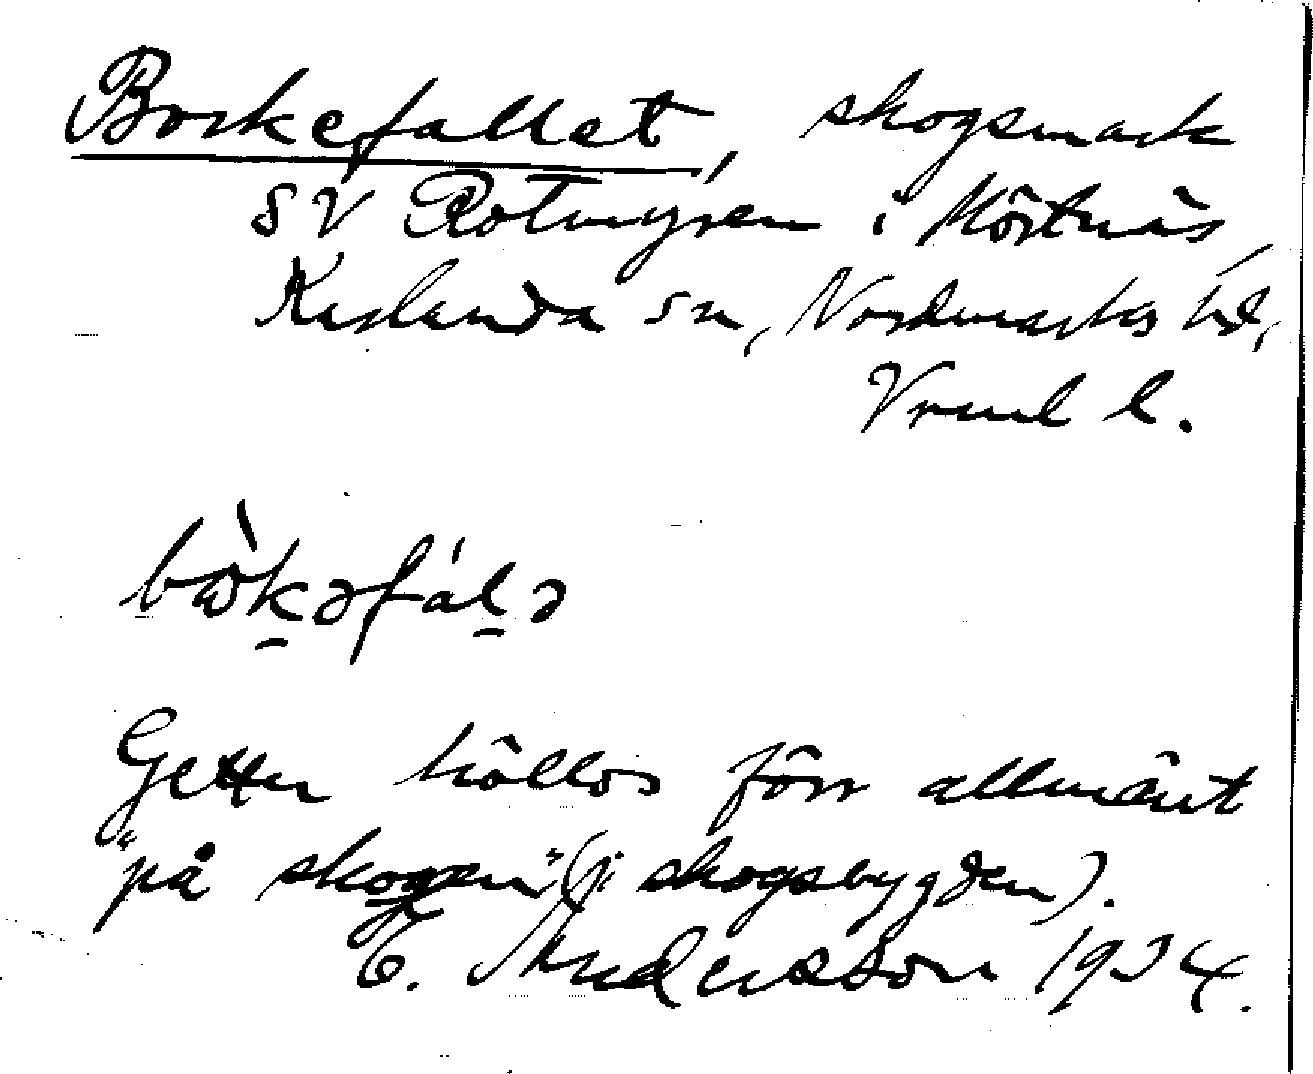 Bockefallet, skogsmark
SV Rotmyren i Mörtnäs
Karlanda sn, Nordmarks hd,
Vrml l.
bɷ̀kəfálə
Getter höllos förr allmänt
"på skogen" (i skogsbygden).
E. Andersson 1934.